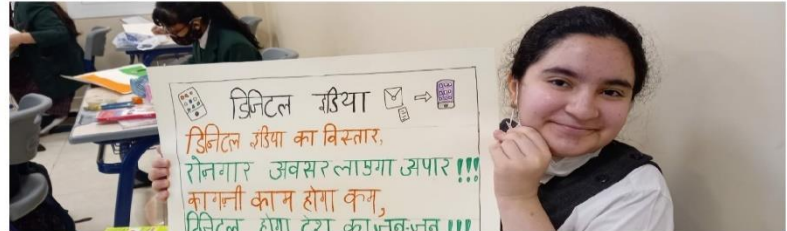 डिजिटल इंडिया
डिजिटल इंडिया का विस्तार,
रोजगार अवसर लाएगा अपार !!!
कागजी काम होगा कम,
डिजिटल होगा देश का जन-जन !!!